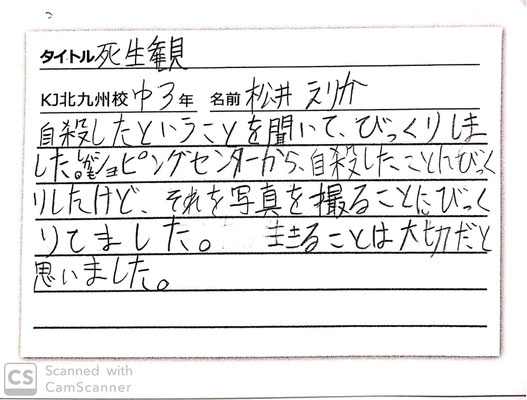 タイトル死生観
KJ北九州校 中3年 名前 松井 えりか
自殺したということを聞いて、びっくりしま
した。しかもショピングセンターから、自殺したことにびっく
りしたけど、それを写真を撮ることにびっく
りてました。 生きることは大切だと
思いました。
CS Scanned with
CamScanner